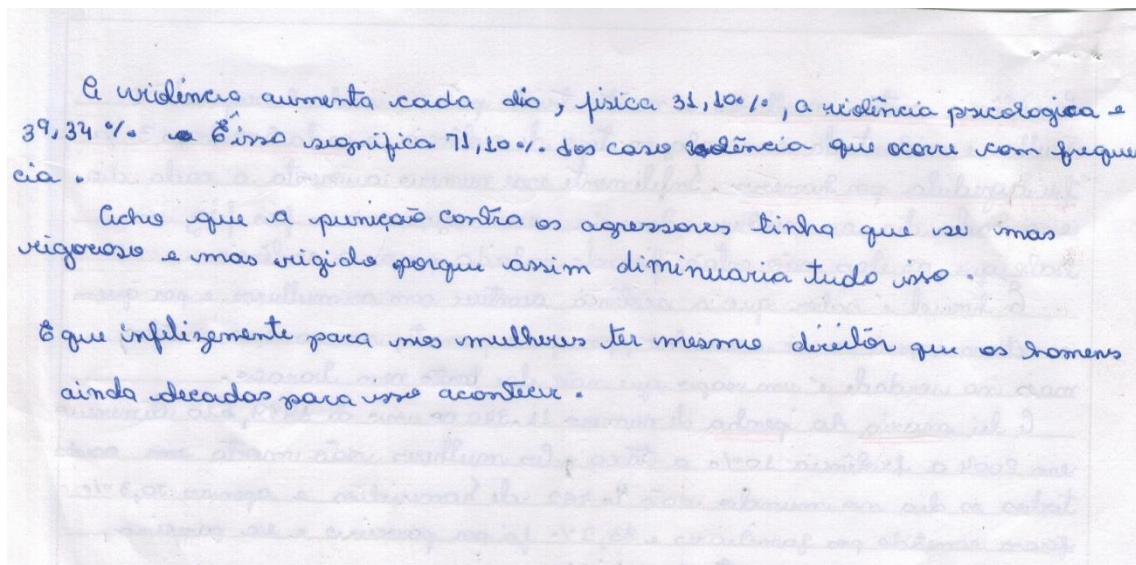 A violência aumenta cada dia, física 31,10%, a violência psicologica e
39,34% E isso significa 71,10% dos caso violência que ocorre com frequen
cia.
Acho que a punição contra os agressores tinha que se mas
rigoroso e mas rigido porque assim diminuaria tudo isso.
E que infelizmente para nos mulheres ter mesmo direitor que os homens
ainda decadas para isso acontecer.